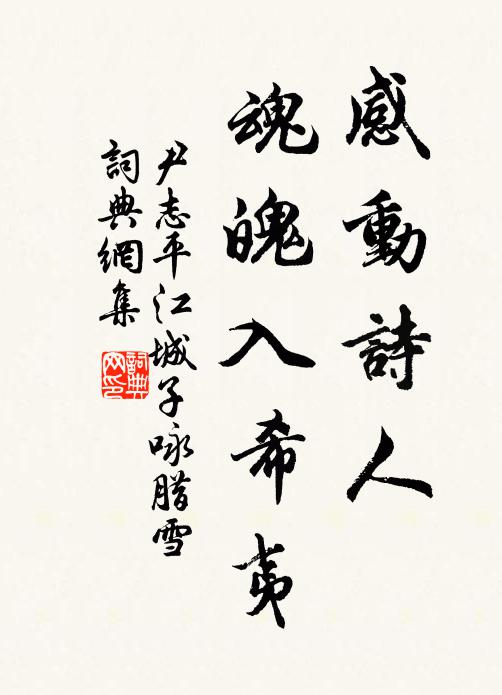 感動詩人
魂魄入希夷
尹志平江城子咏腊雪
詞典網集
詞典网印